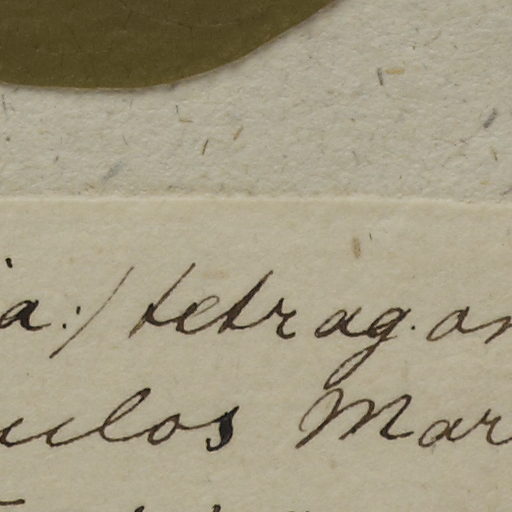 ia:/ tetrag. an
ulos Mar